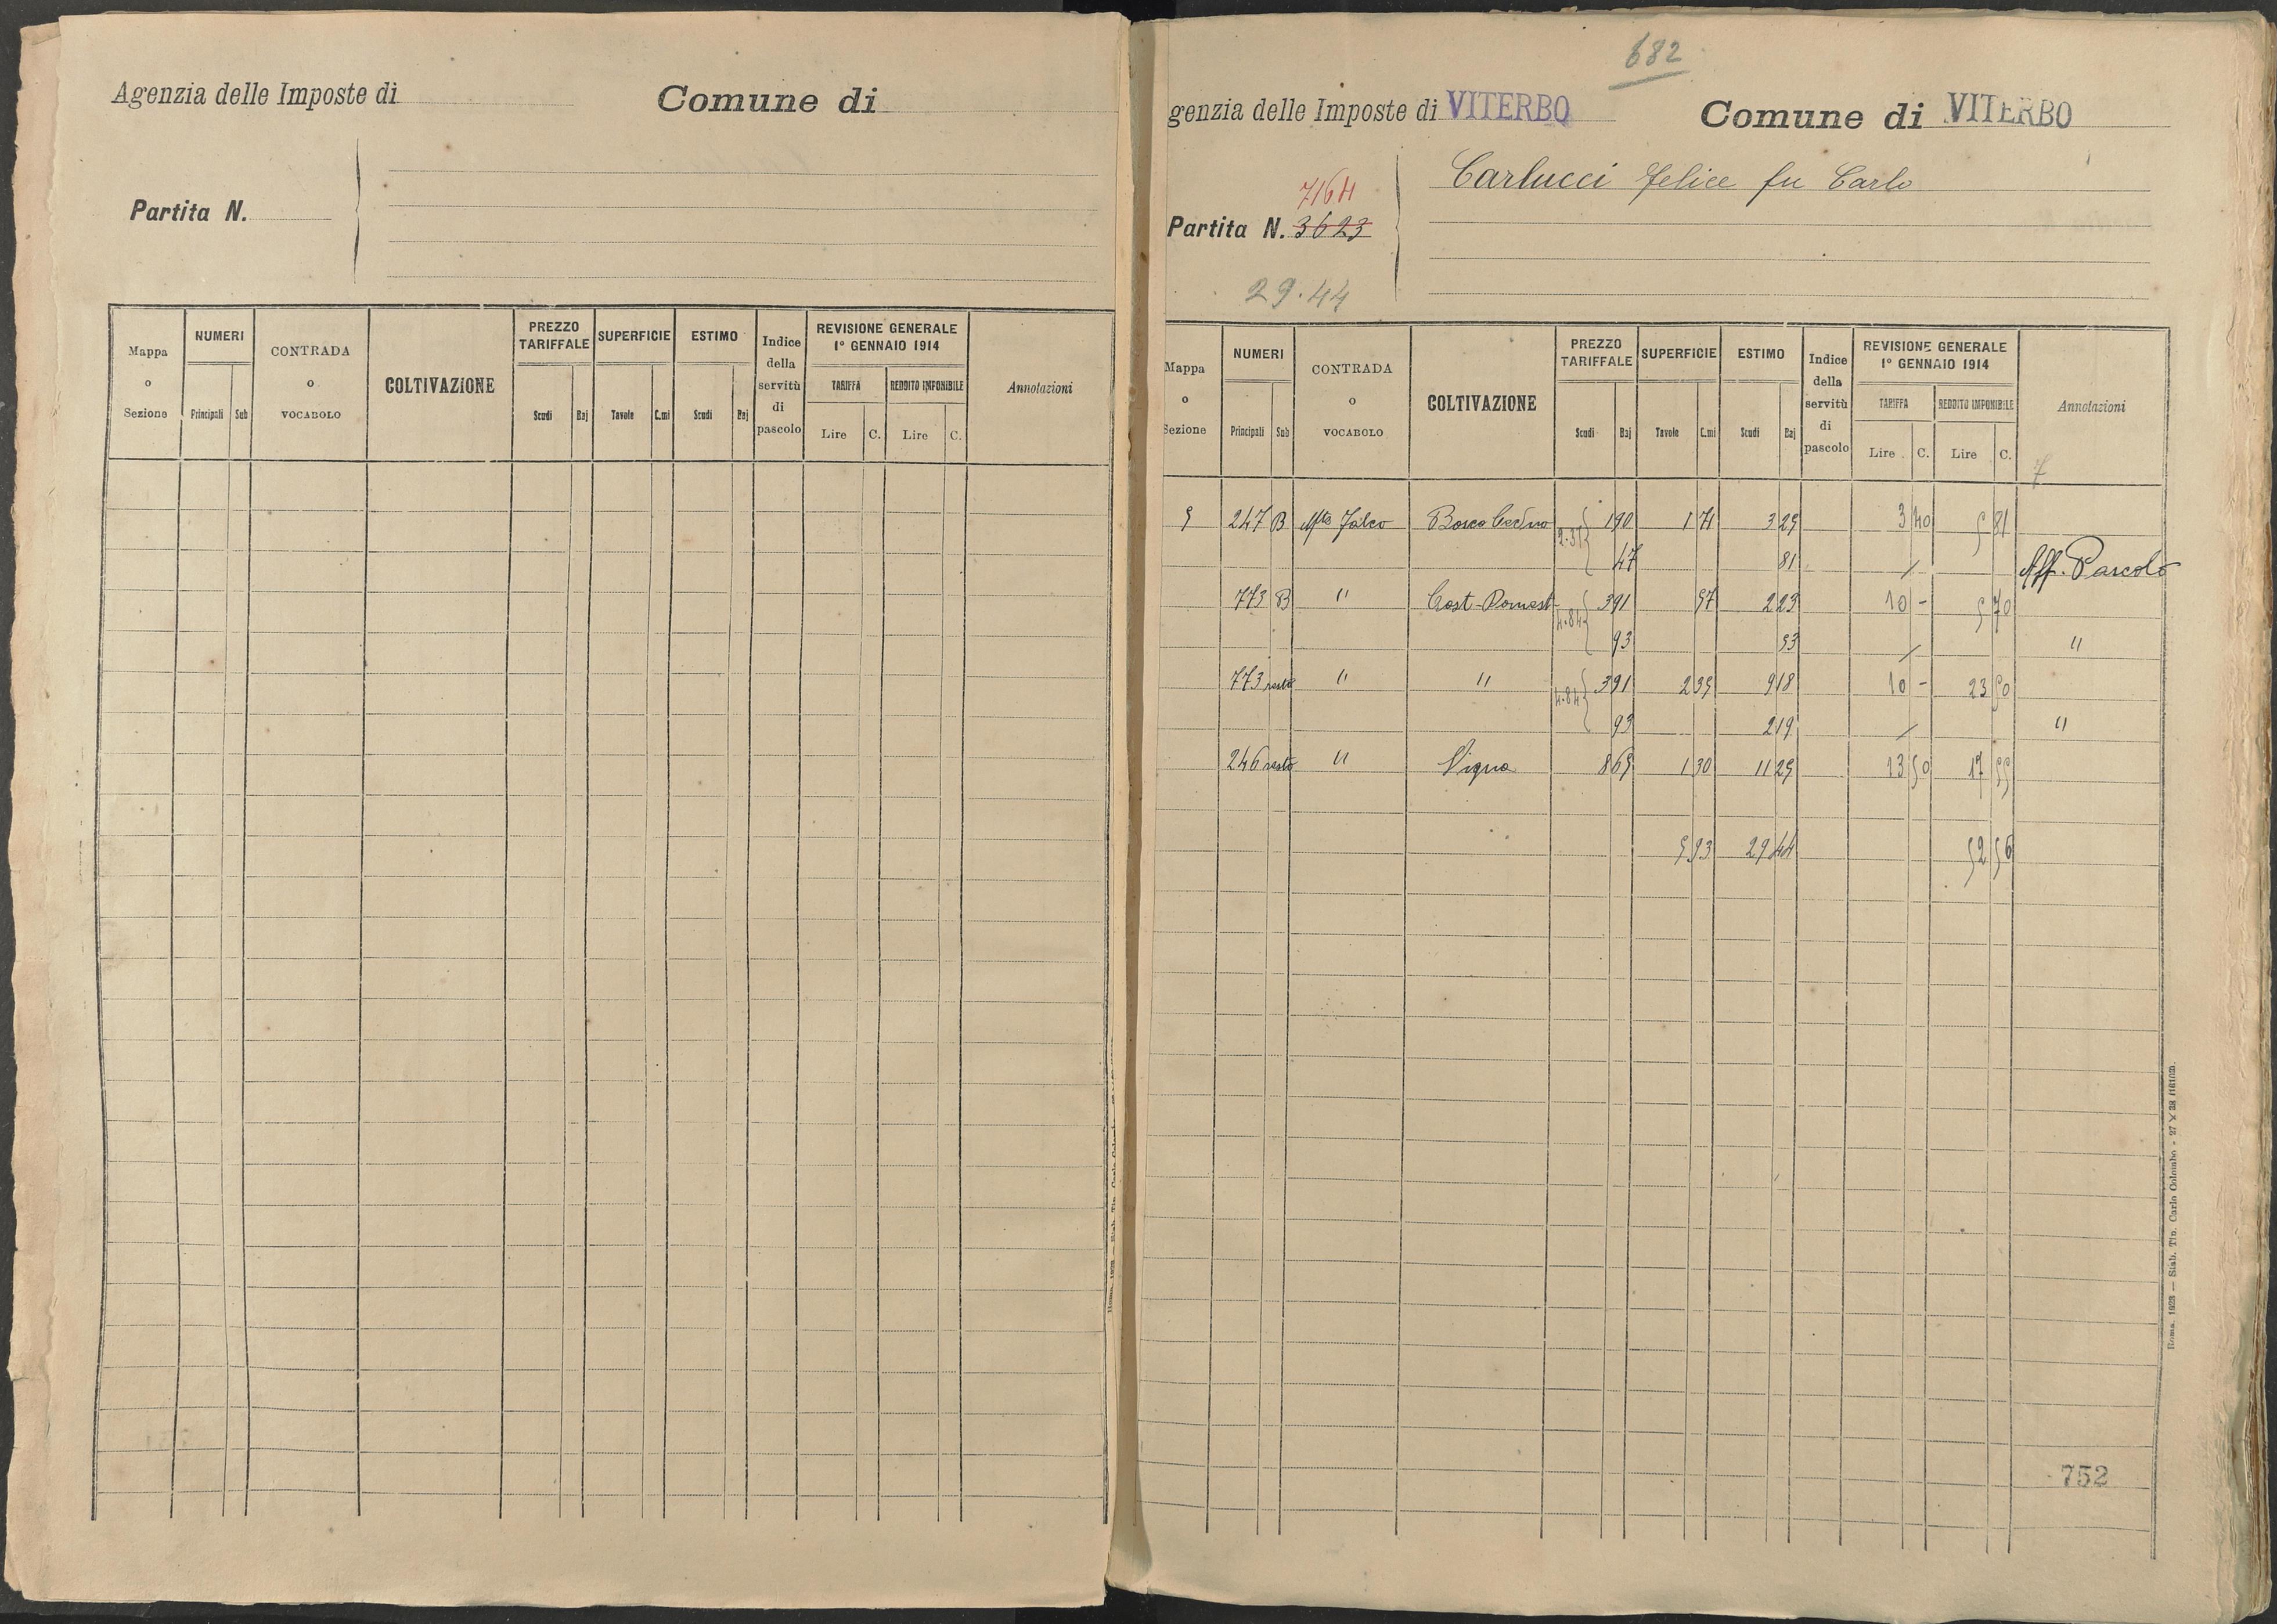 Agenzia delle Imposte di
Comune di
Partita N.
Mappa o Sezione
NUMERI
Principali Sub
CONTRADA o VOCABOLO
COLTIVAZIONE
PREZZO TARIFFALE
Scudi Baj
SUPERFICIE
Tavole C.mi
ESTIMO
Scudi Baj
Indice della servitù di pascolo
REVISIONE GENERALE
1° GENNAIO 1914
TARIFFA REDDITO IMPONIBILE
Lire C. Lire C.
Annotazioni
682
genzia delle Imposte di VITERBO
Comune di VITERBO
7164
Partita N. 3623
Carlucci Felice fu Carlo
29.44
Mappa o Sezione
NUMERI
Principali Sub
CONTRADA o VOCABOLO
COLTIVAZIONE
PREZZO TARIFFALE
Scudi Baj
SUPERFICIE
Tavole C.mi
ESTIMO
Scudi Baj
Indice della servitù di pascolo
REVISIONE GENERALE
1° GENNAIO 1914
TARIFFA REDDITO IMPONIBILE
Lire C. Lire C.
Annotazioni
7
5 247 B Mte Jalco Bosco Ceduo 2.37 1 90 1 71 3 25 3 40 5 81
47 81 Aff. Pascolo
773 B " Cast-Domest 4.84 3 91 57 2 23 10 - 5 70
93 53 "
773 resto " " 4.84 3 91 2 35 9 18 10 - 23 50
93 2 19 "
246 resto " Vigna 8 65 1 30 11 25 13 50 17 55
5 93 29 44 52 56
752
Roma, 1923 — Stab. Tip. Carlo Colombo